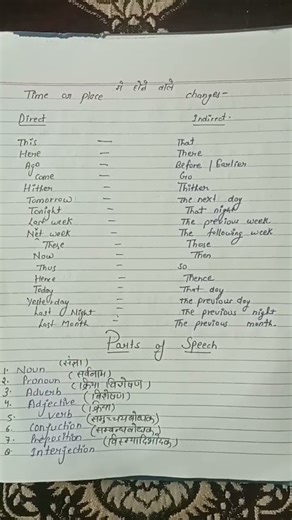 Time or place में होने वाले changes-
Direct Indirect.
This — That
Here — There
Ago — Before / Earlier
Come — Go
Hither — Thither
Tomorrow — The next day
Tonight — That night
Last week — The previous week
Next week — The following week
These — Those
Now — Then
Thus — So
Hence — Thence
Today — That day
Yesterday — The previous day
Last Night — The previous night
Last Month — The previous month.
Parts of Speech
1. Noun (संज्ञा)
2. Pronoun (सर्वनाम)
3. Adverb (क्रिया विशेषण)
4. Adjective (विशेषण)
5. Verb (क्रिया)
6. Conjuction (समुच्चयबोधक)
7. Preposition (सम्बन्धबोधक)
8 Interjection (विस्मयादिबोधक)